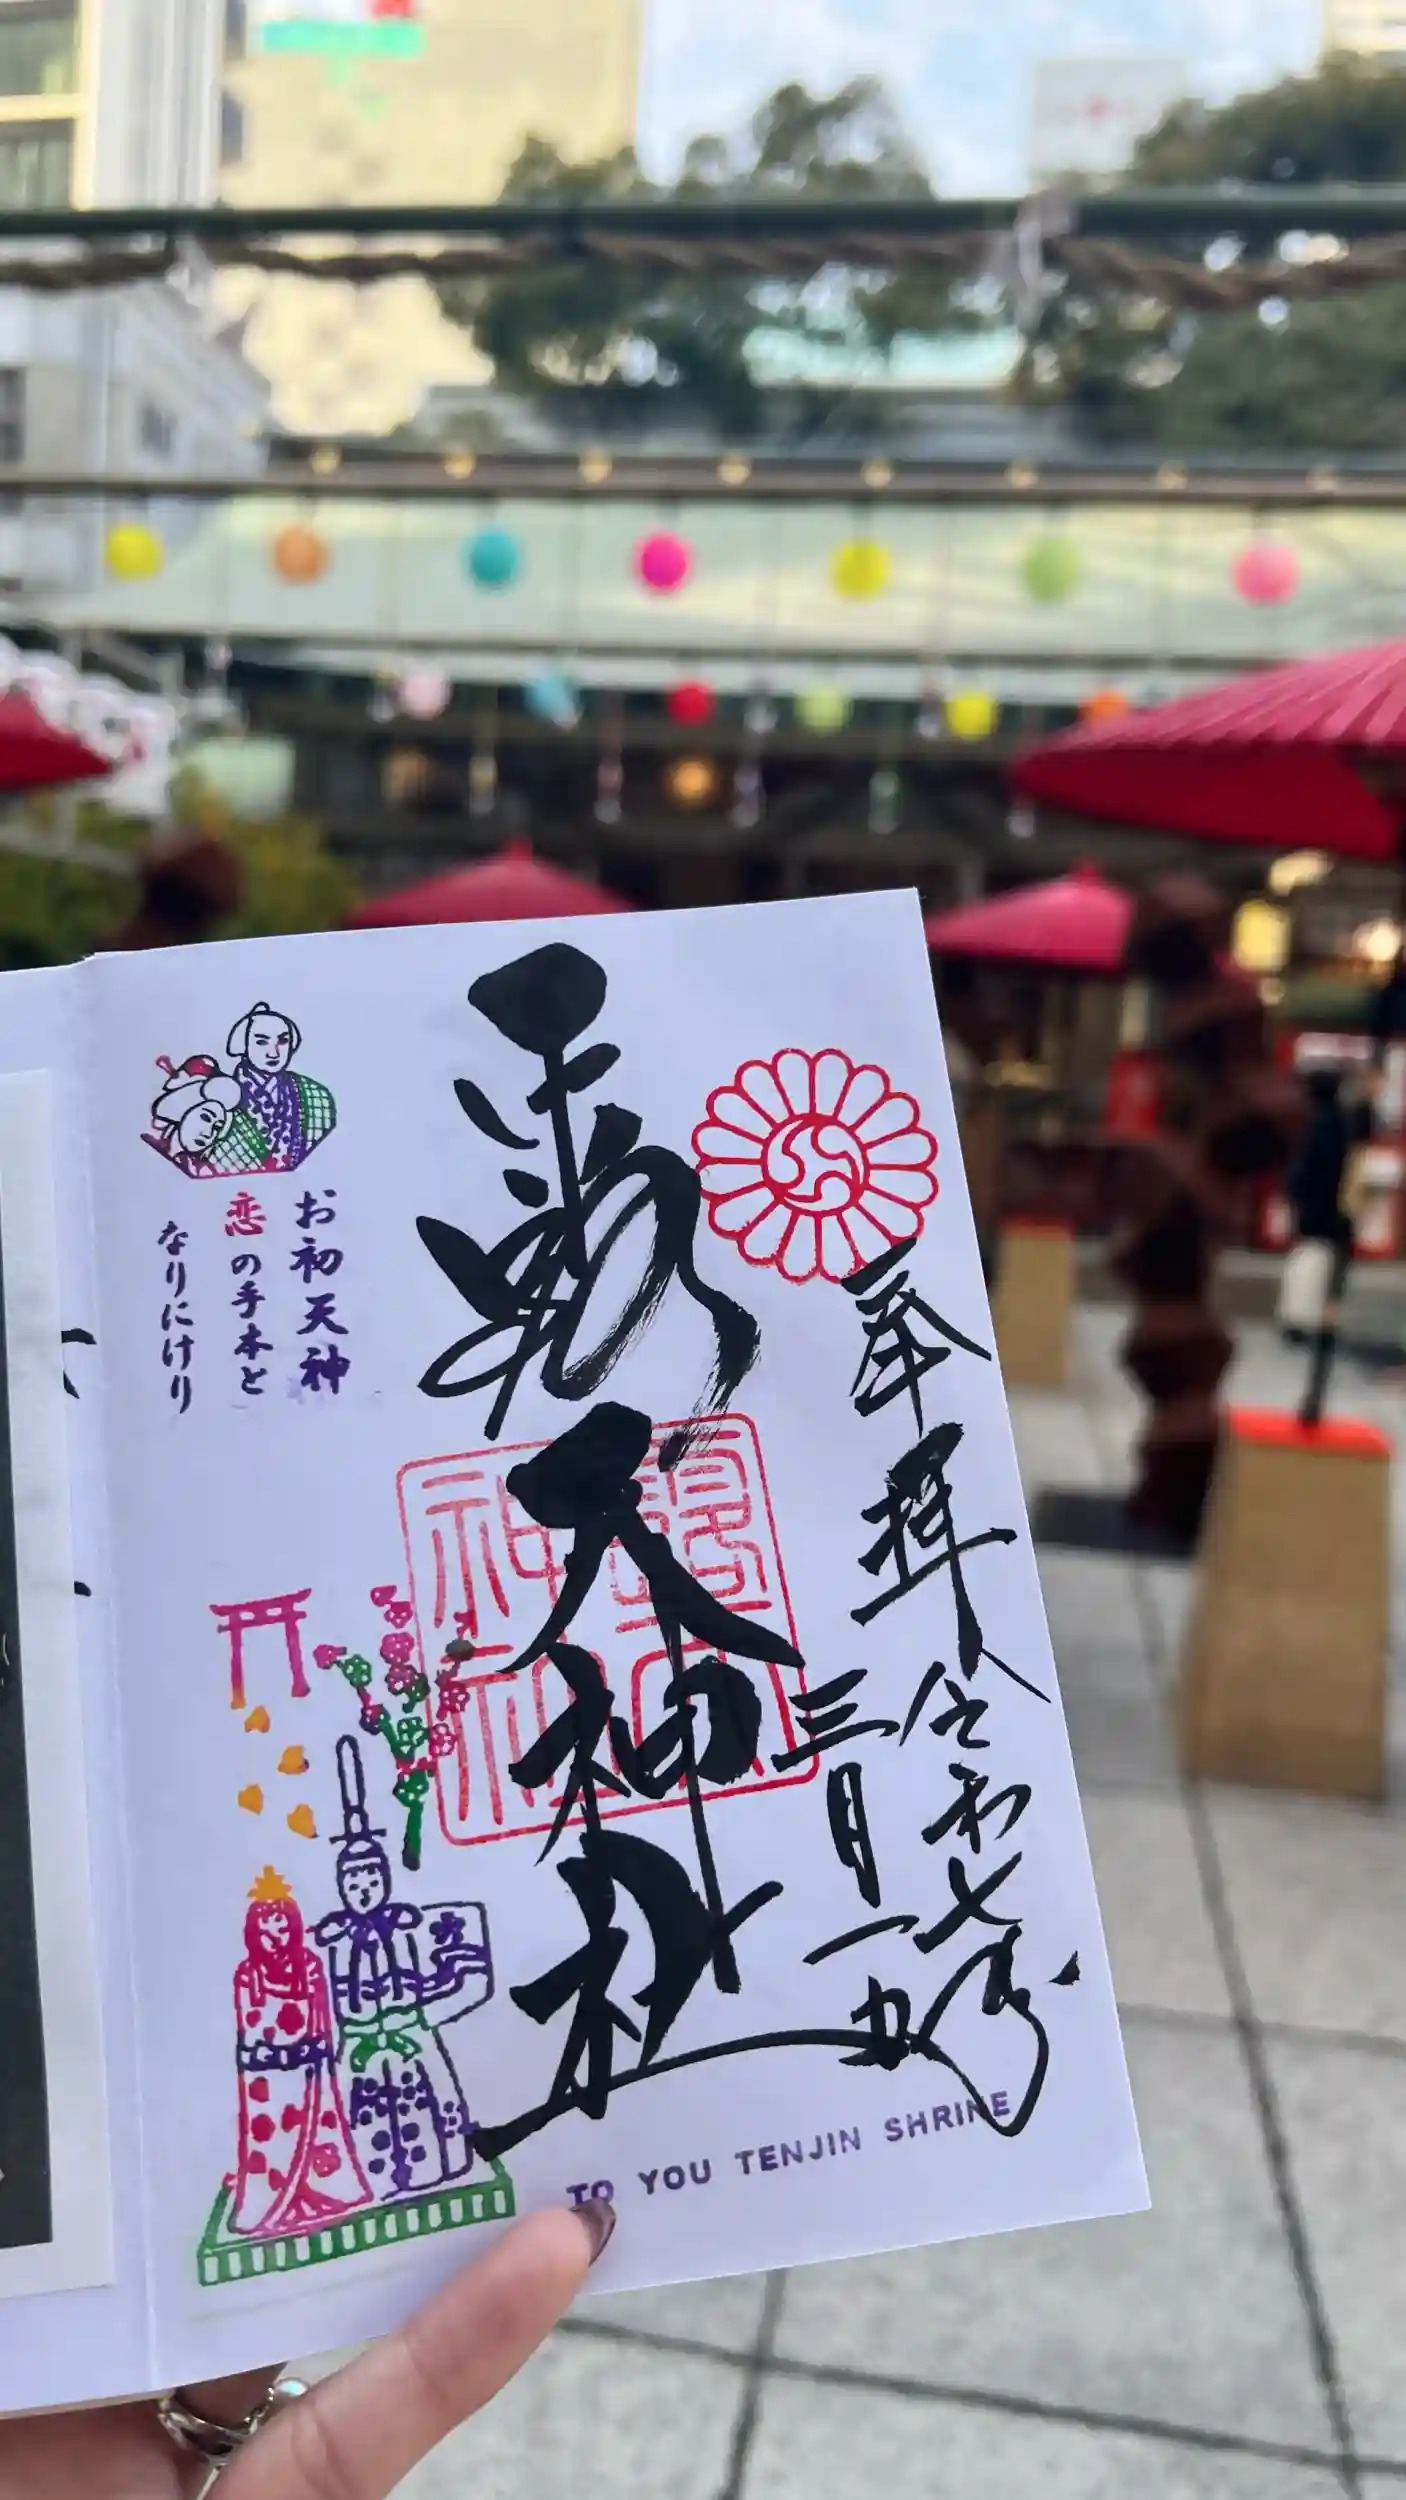 奉拝
令和七年
三月一五
露天神社
露天
神社
お初天神
恋の手本と
なりにけり
TO YOU TENJIN SHRINE